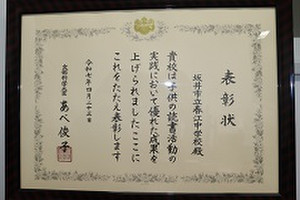 表彰状
坂井市立春江中学校殿
貴校は子供の読書活動の
実践において優れた成果を
上げられましたここに
これをたたえ表彰します
令和七年四月二十三日
文部科学大臣 あべ俊子